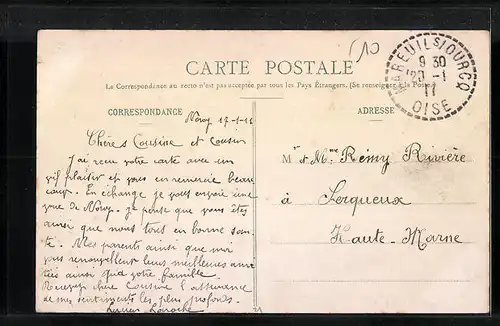 (10
CARTE POSTALE
La Correspondance au recto n'est pas acceptée par tous les Pays Étrangers. (Se renseigner à la Poste)
MAREUIL S/OURCQ
9 30
20 -1
11
OISE
CORRESPONDANCE
ADRESSE
Noroy 17-1-11
Chère Cousine et Cousin
J'ai reçu votre carte avec un
vif plaisir et vous en remercie beau
coup. En échange je vous envoie une
vue de Noroy. Je pense que vous êtes
ainsi que nous tous en bonne san-
té. Mes parents ainsi que moi
vous renouvellent leurs meilleures ami
tiés ainsi qu'à votre famille.
Recevez chère Cousine l'assurance
de mes sentiments les plus profonds.
Lucien Laroche
Mr et Mme Rémy Rivière
à Serqueux
Haute-Marne